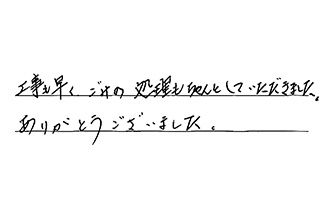 工事も早く、ごみの処理もちゃんとしていただきました。
ありがとうございました。